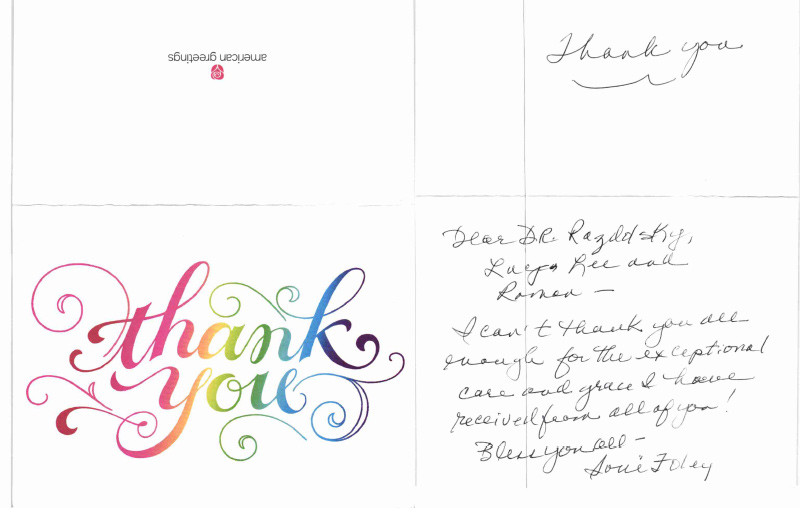 american greetings
thank
you
Thank you
Dear DR. Razddsky,
Lee and
Roman —
I can't thank you all
enough for the exceptional
care and grace I have
received from all of you!
Bless you all —
Foley